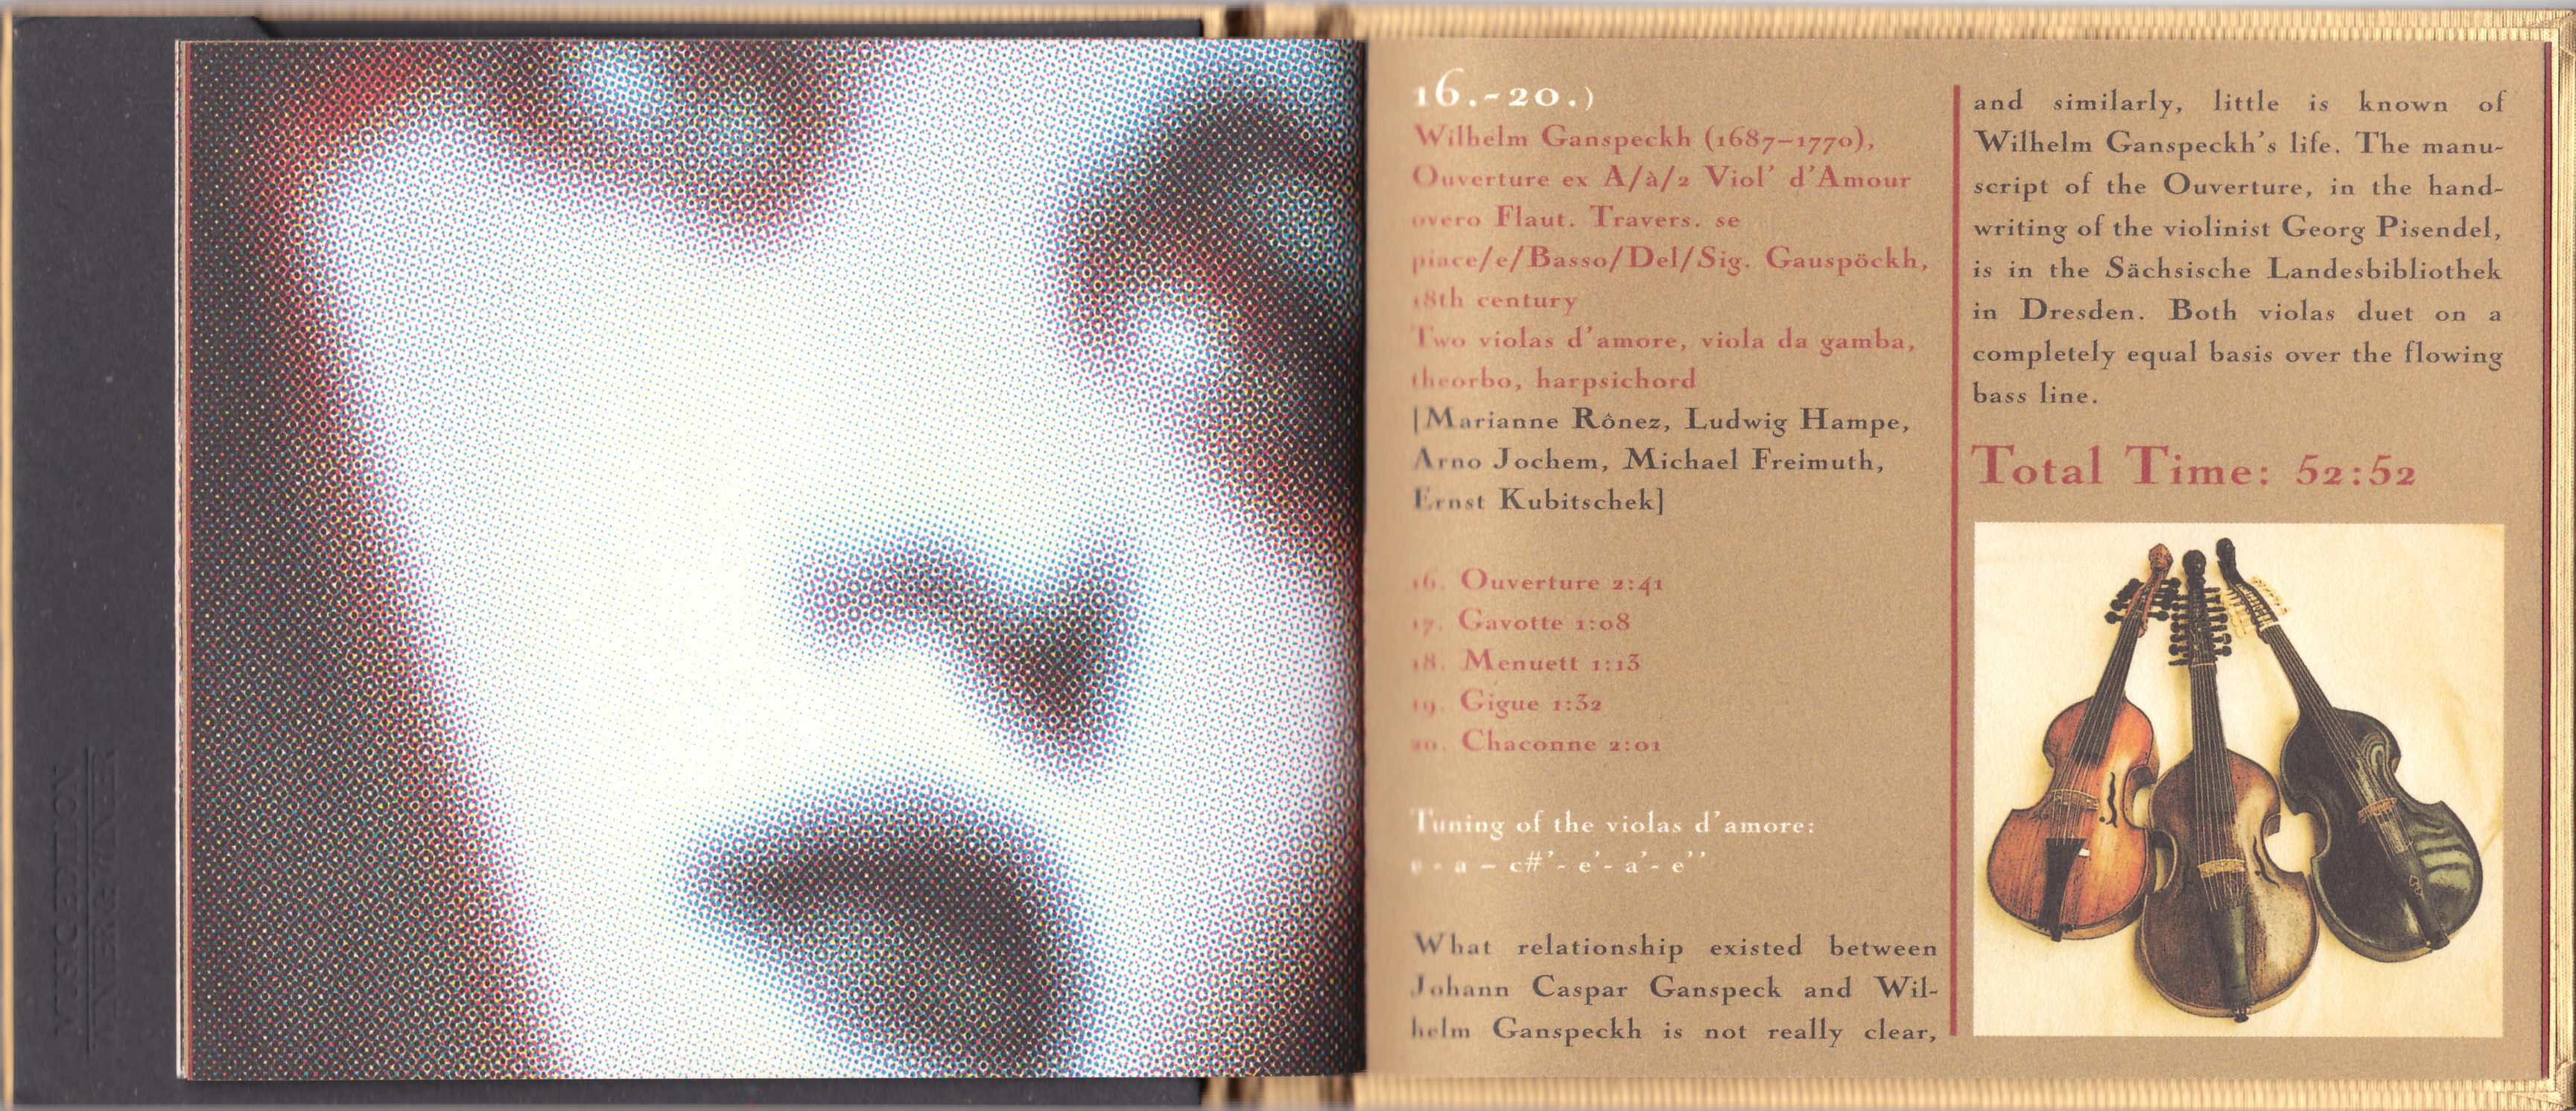 MUSIC EDITION
WINTER & WINTER
16.-20.)
Wilhelm Ganspeckh (1687–1770),
Ouverture ex A/à/2 Viol' d'Amour
overo Flaut. Travers. se
piace/e/Basso/Del/Sig. Gauspöckh,
18th century
Two violas d'amore, viola da gamba,
theorbo, harpsichord
[Marianne Rônez, Ludwig Hampe,
Arno Jochem, Michael Freimuth,
Ernst Kubitschek]
16. Ouverture 2:41
17. Gavotte 1:08
18. Menuett 1:13
19. Gigue 1:32
20. Chaconne 2:01
Tuning of the violas d'amore:
e - a – c#'- e'- a'- e''
What relationship existed between
Johann Caspar Ganspeck and Wil-
helm Ganspeckh is not really clear,
and similarly, little is known of
Wilhelm Ganspeckh's life. The manu-
script of the Ouverture, in the hand-
writing of the violinist Georg Pisendel,
is in the Sächsische Landesbibliothek
in Dresden. Both violas duet on a
completely equal basis over the flowing
bass line.
Total Time: 52:52